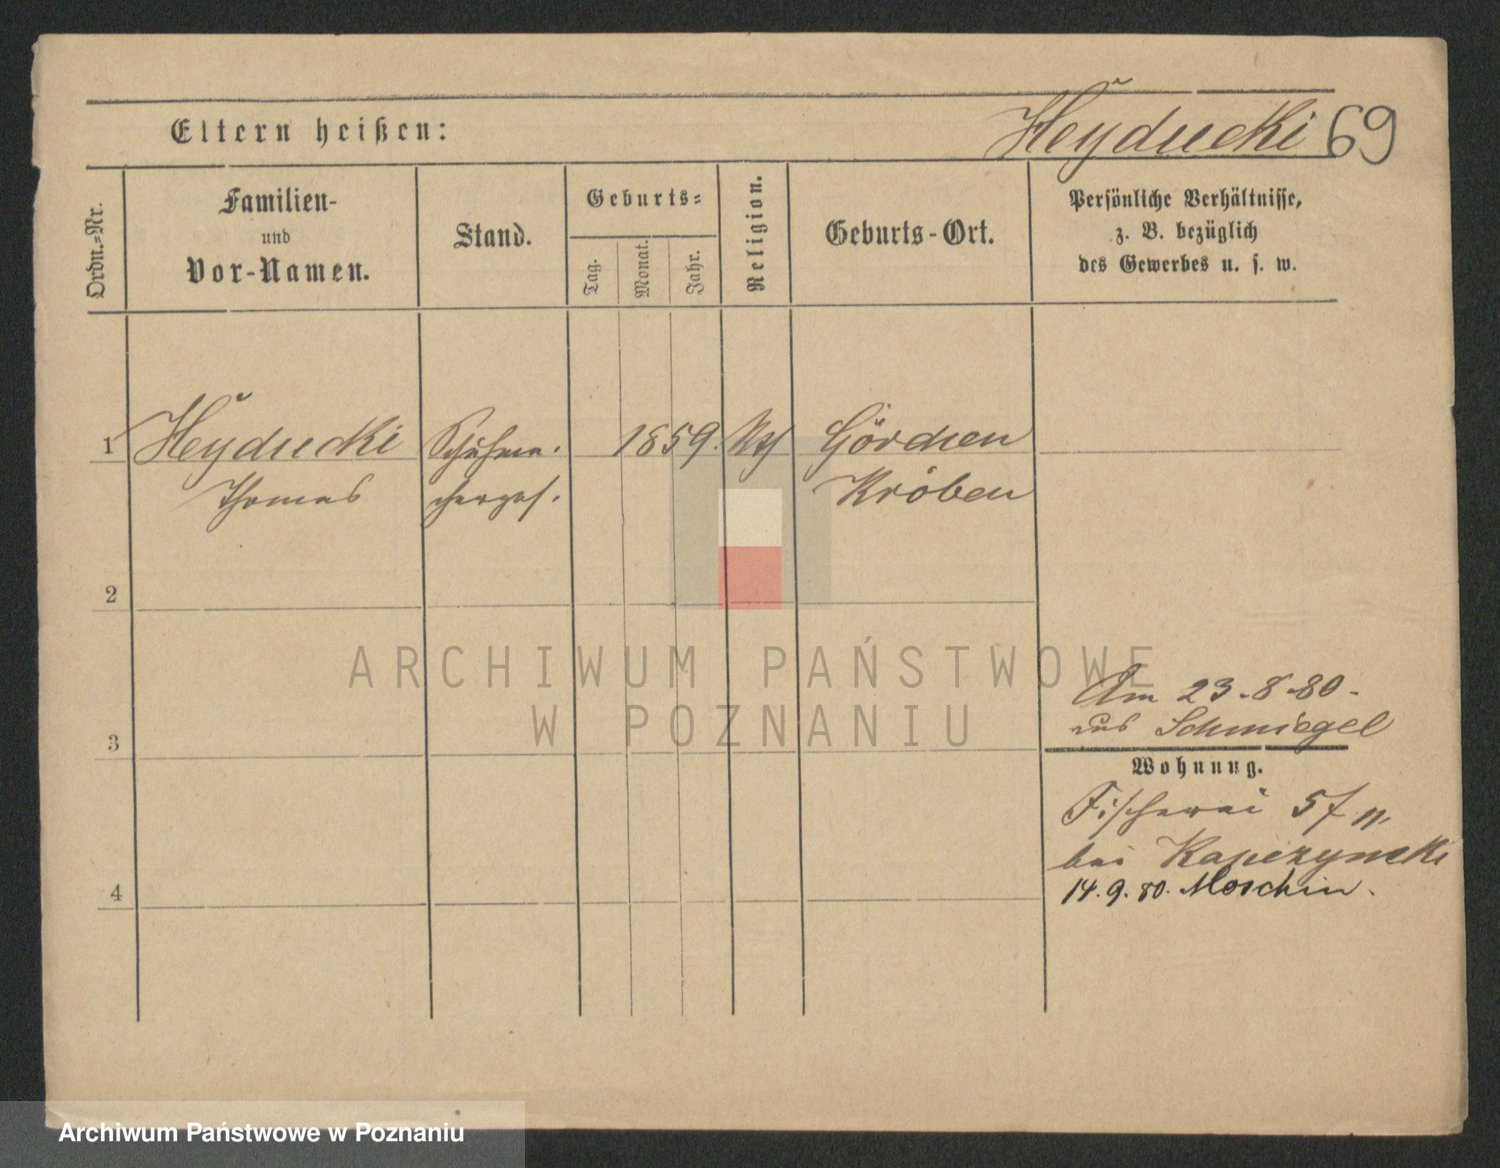 Eltern heißen:
Heyducki 69
Ordn.=Nr.
Familien-
und
Vor-Namen.
Stand.
Geburts=
Tag.
Monat.
Jahr.
Religion.
Geburts-Ort.
Persönliche Verhältnisse,
z. B. bezüglich
des Gewerbes u. s. w.
1 Heyducki Schuhma- 1859. Kth Görchen
Thomas cherges. Kröben
2
ARCHIWUM PAŃSTWOWE
W POZNANIU
Am 23.8.80.
aus Schmiegel
3
Wohnung.
Fischerei 5
bei
4
14.9.80. Moschin.
Archiwum Państwowe w Poznaniu